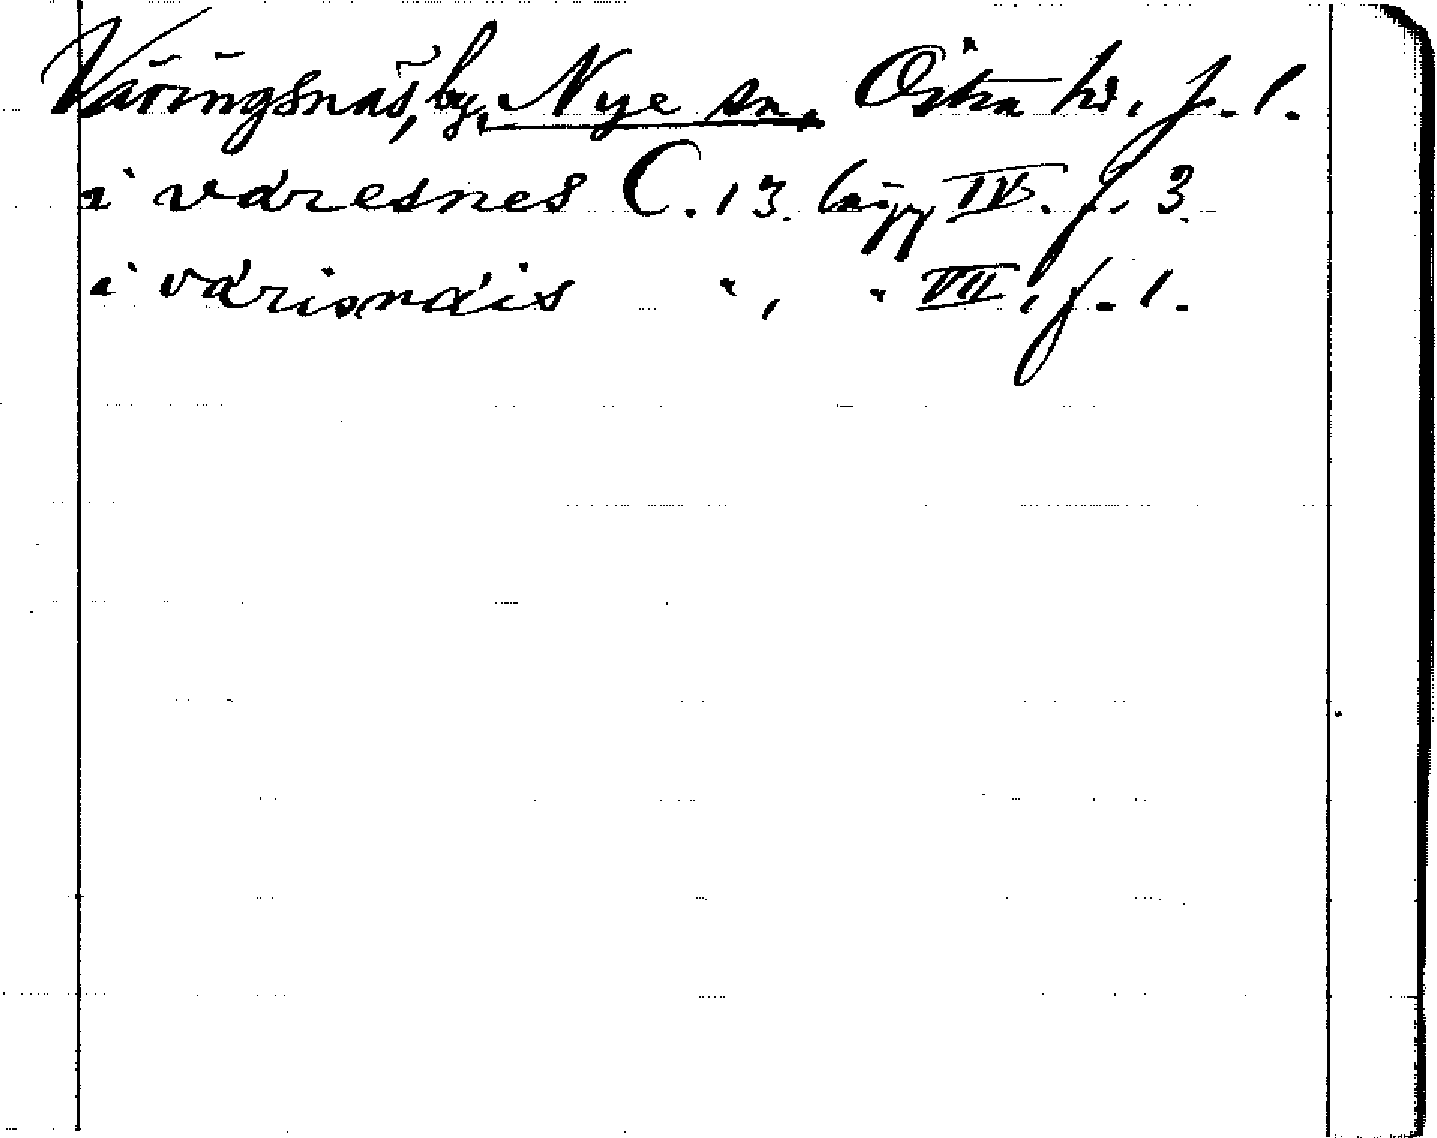 Väringsnäs, by, Nye sn. Östra hd. f. 1.
i väresnes C. 13. Cägg IV. f. 3
i värisnäis ", " VII. f. 1.